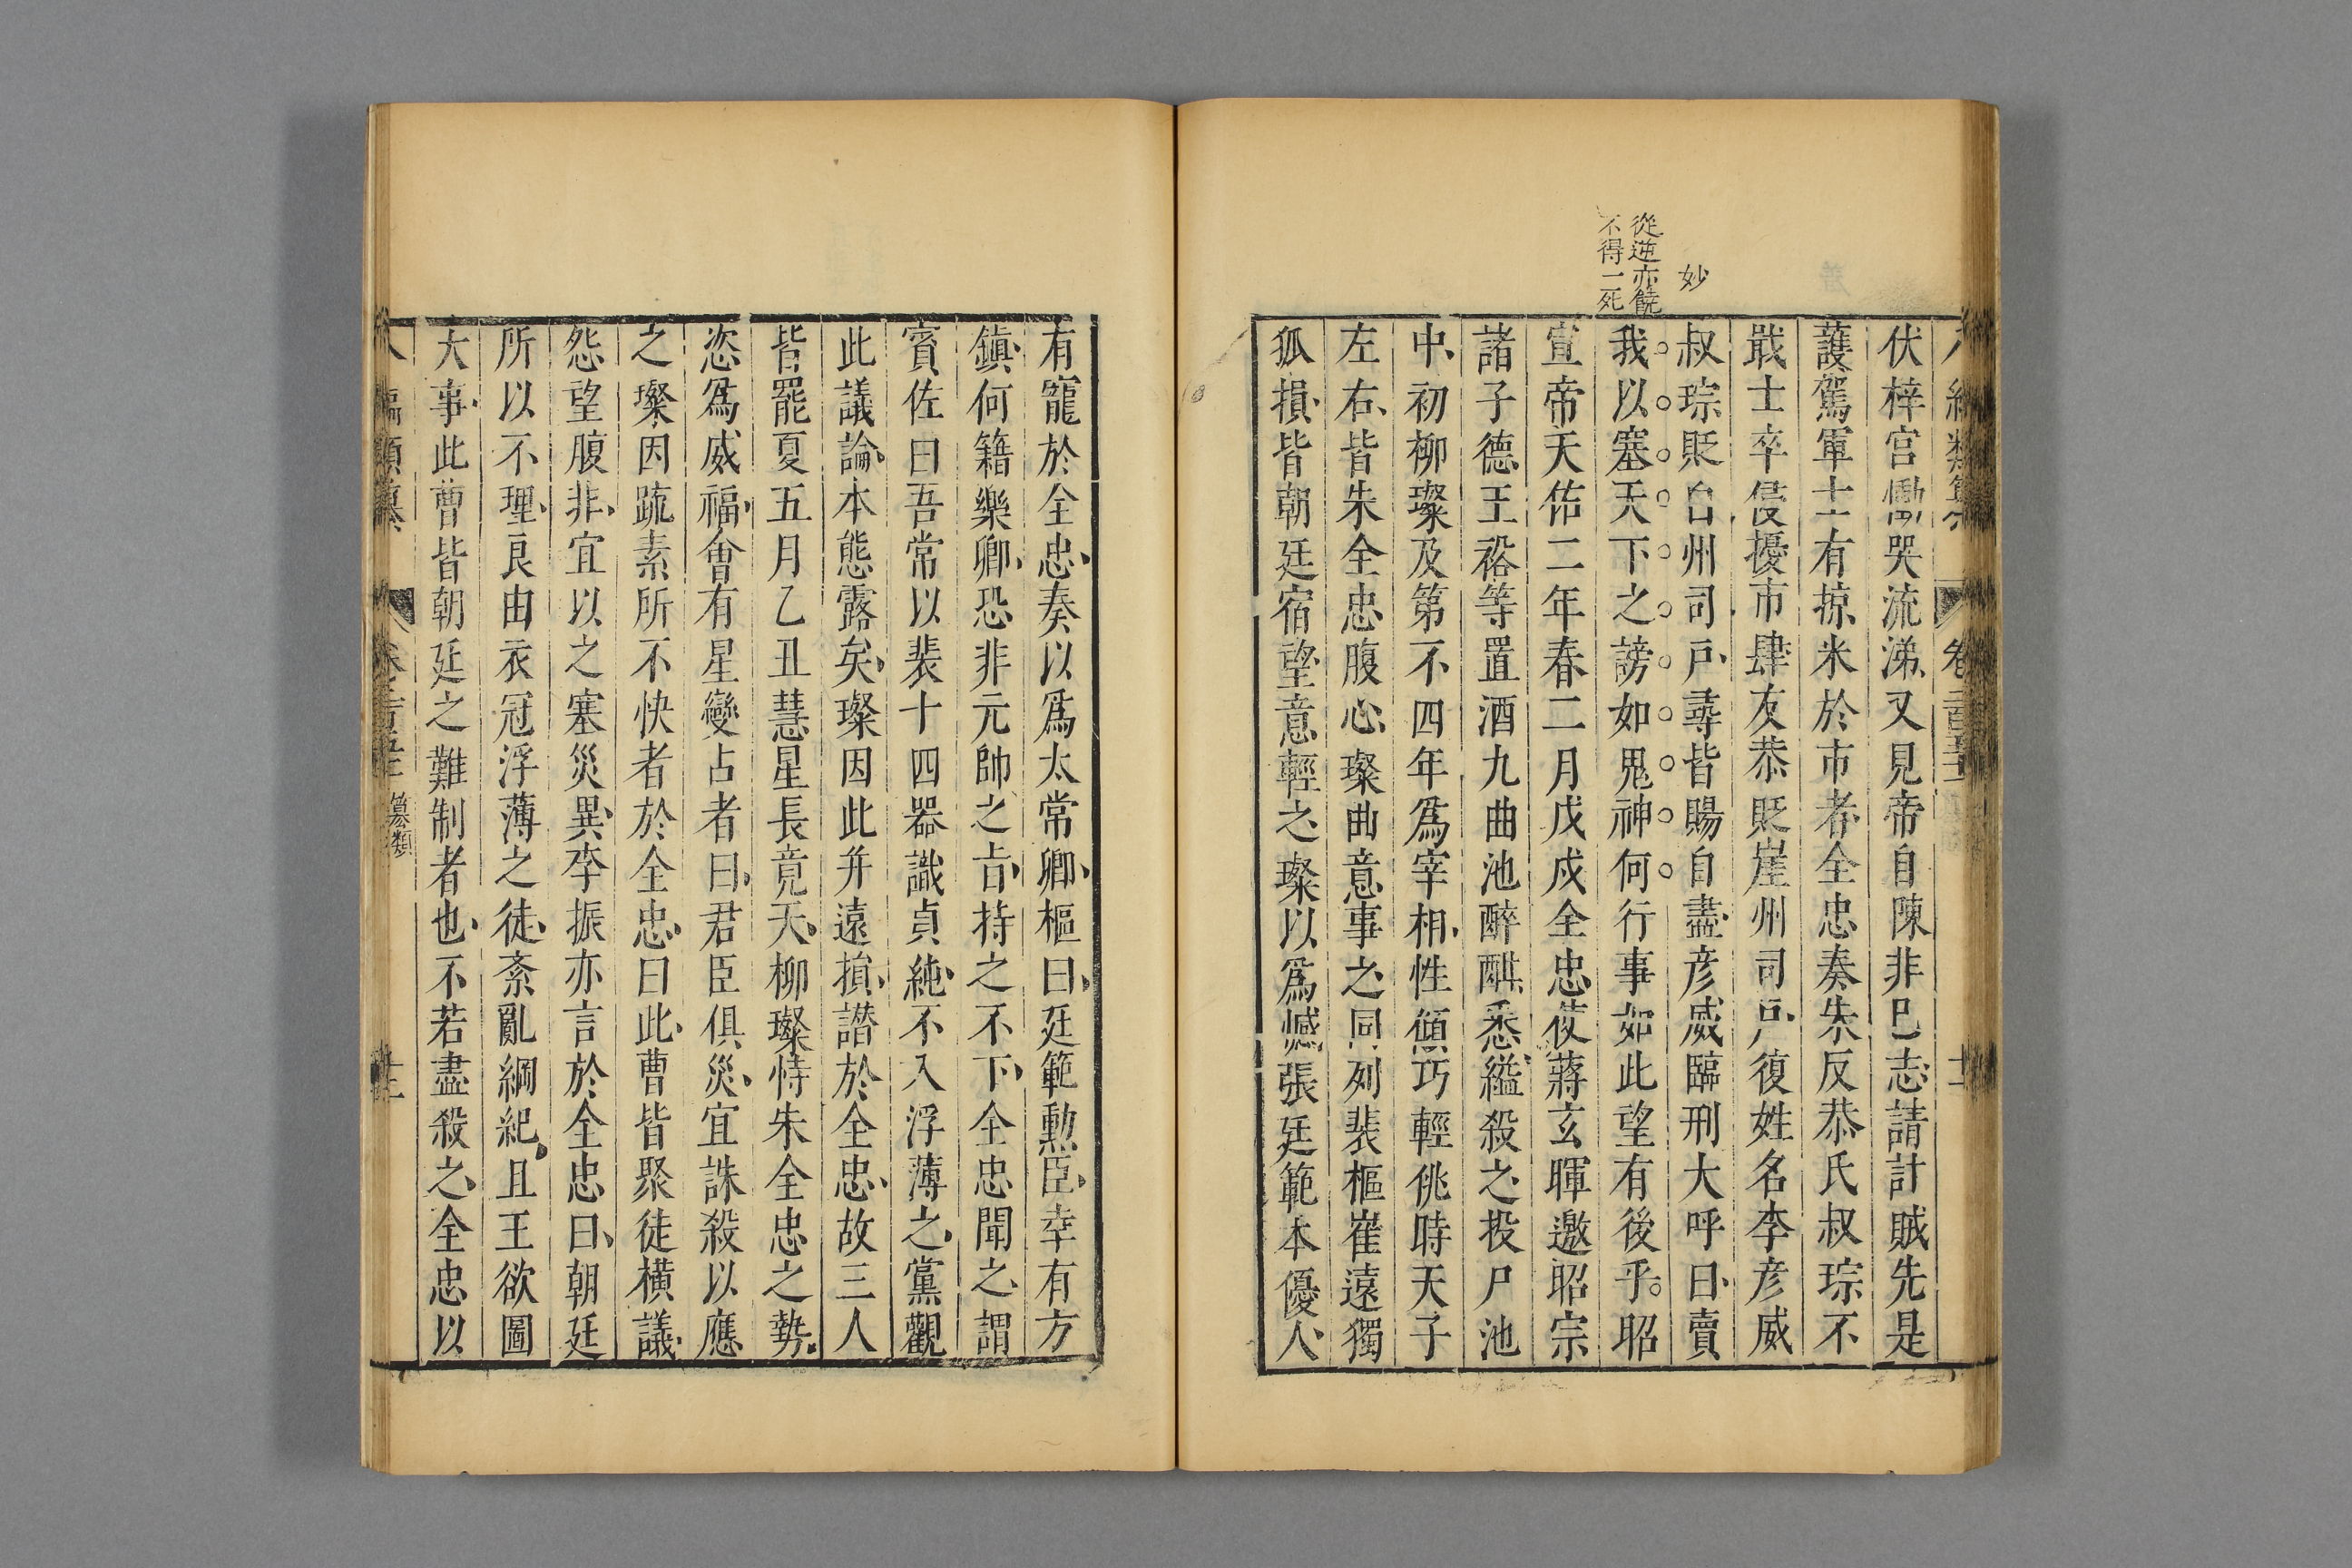 妙
從逆亦饒
不得一死
伏梓宫慟哭流涕又見帝自陳非巳志請討賊先是
護駕軍士有掠米於市者全忠奏朱友恭氏叔琮不
戢士卒侵擾市肆友恭貶崖州司戶復姓名李彦威
叔琮貶白州司戶尋皆賜自盡彦威臨刑大呼曰賣
我以塞天下之謗如鬼神何行事如此望有後乎昭
宣帝天佑二年春二月戊戌全忠使蔣玄暉邀昭宗
諸子德王裕等置酒九曲池醉酣悉縊殺之投尸池
中初柳璨及第不四年爲宰相性傾巧輕佻時天子
左右皆朱全忠腹心璨曲意事之同列裴樞崔遠獨
狐損皆朝廷宿望意輕之璨以爲憾張廷範本優人
有寵於全忠奏以爲太常卿樞曰廷範勲臣幸有方
鎮何籍樂卿恐非元帥之旨持之不下全忠聞之謂
賓佐曰吾常以裴十四器識貞純不入浮薄之黨觀
此議論本態露矣璨因此并遠損譖於全忠故三人
皆罷夏五月乙丑慧星長竟天柳璨恃朱全忠之勢
恣爲威福會有星變占者曰君臣俱災宜誅殺以應
之璨因疏素所不快者於全忠曰此曹皆聚徒橫議
怨望腹非宜以之塞災異李振亦言於全忠曰朝廷
所以不理良由衣冠浮薄之徒紊亂綱紀且王欲圖
大事此曹皆朝廷之難制者也不若盡殺之全忠以
編類纂 卷 篡類